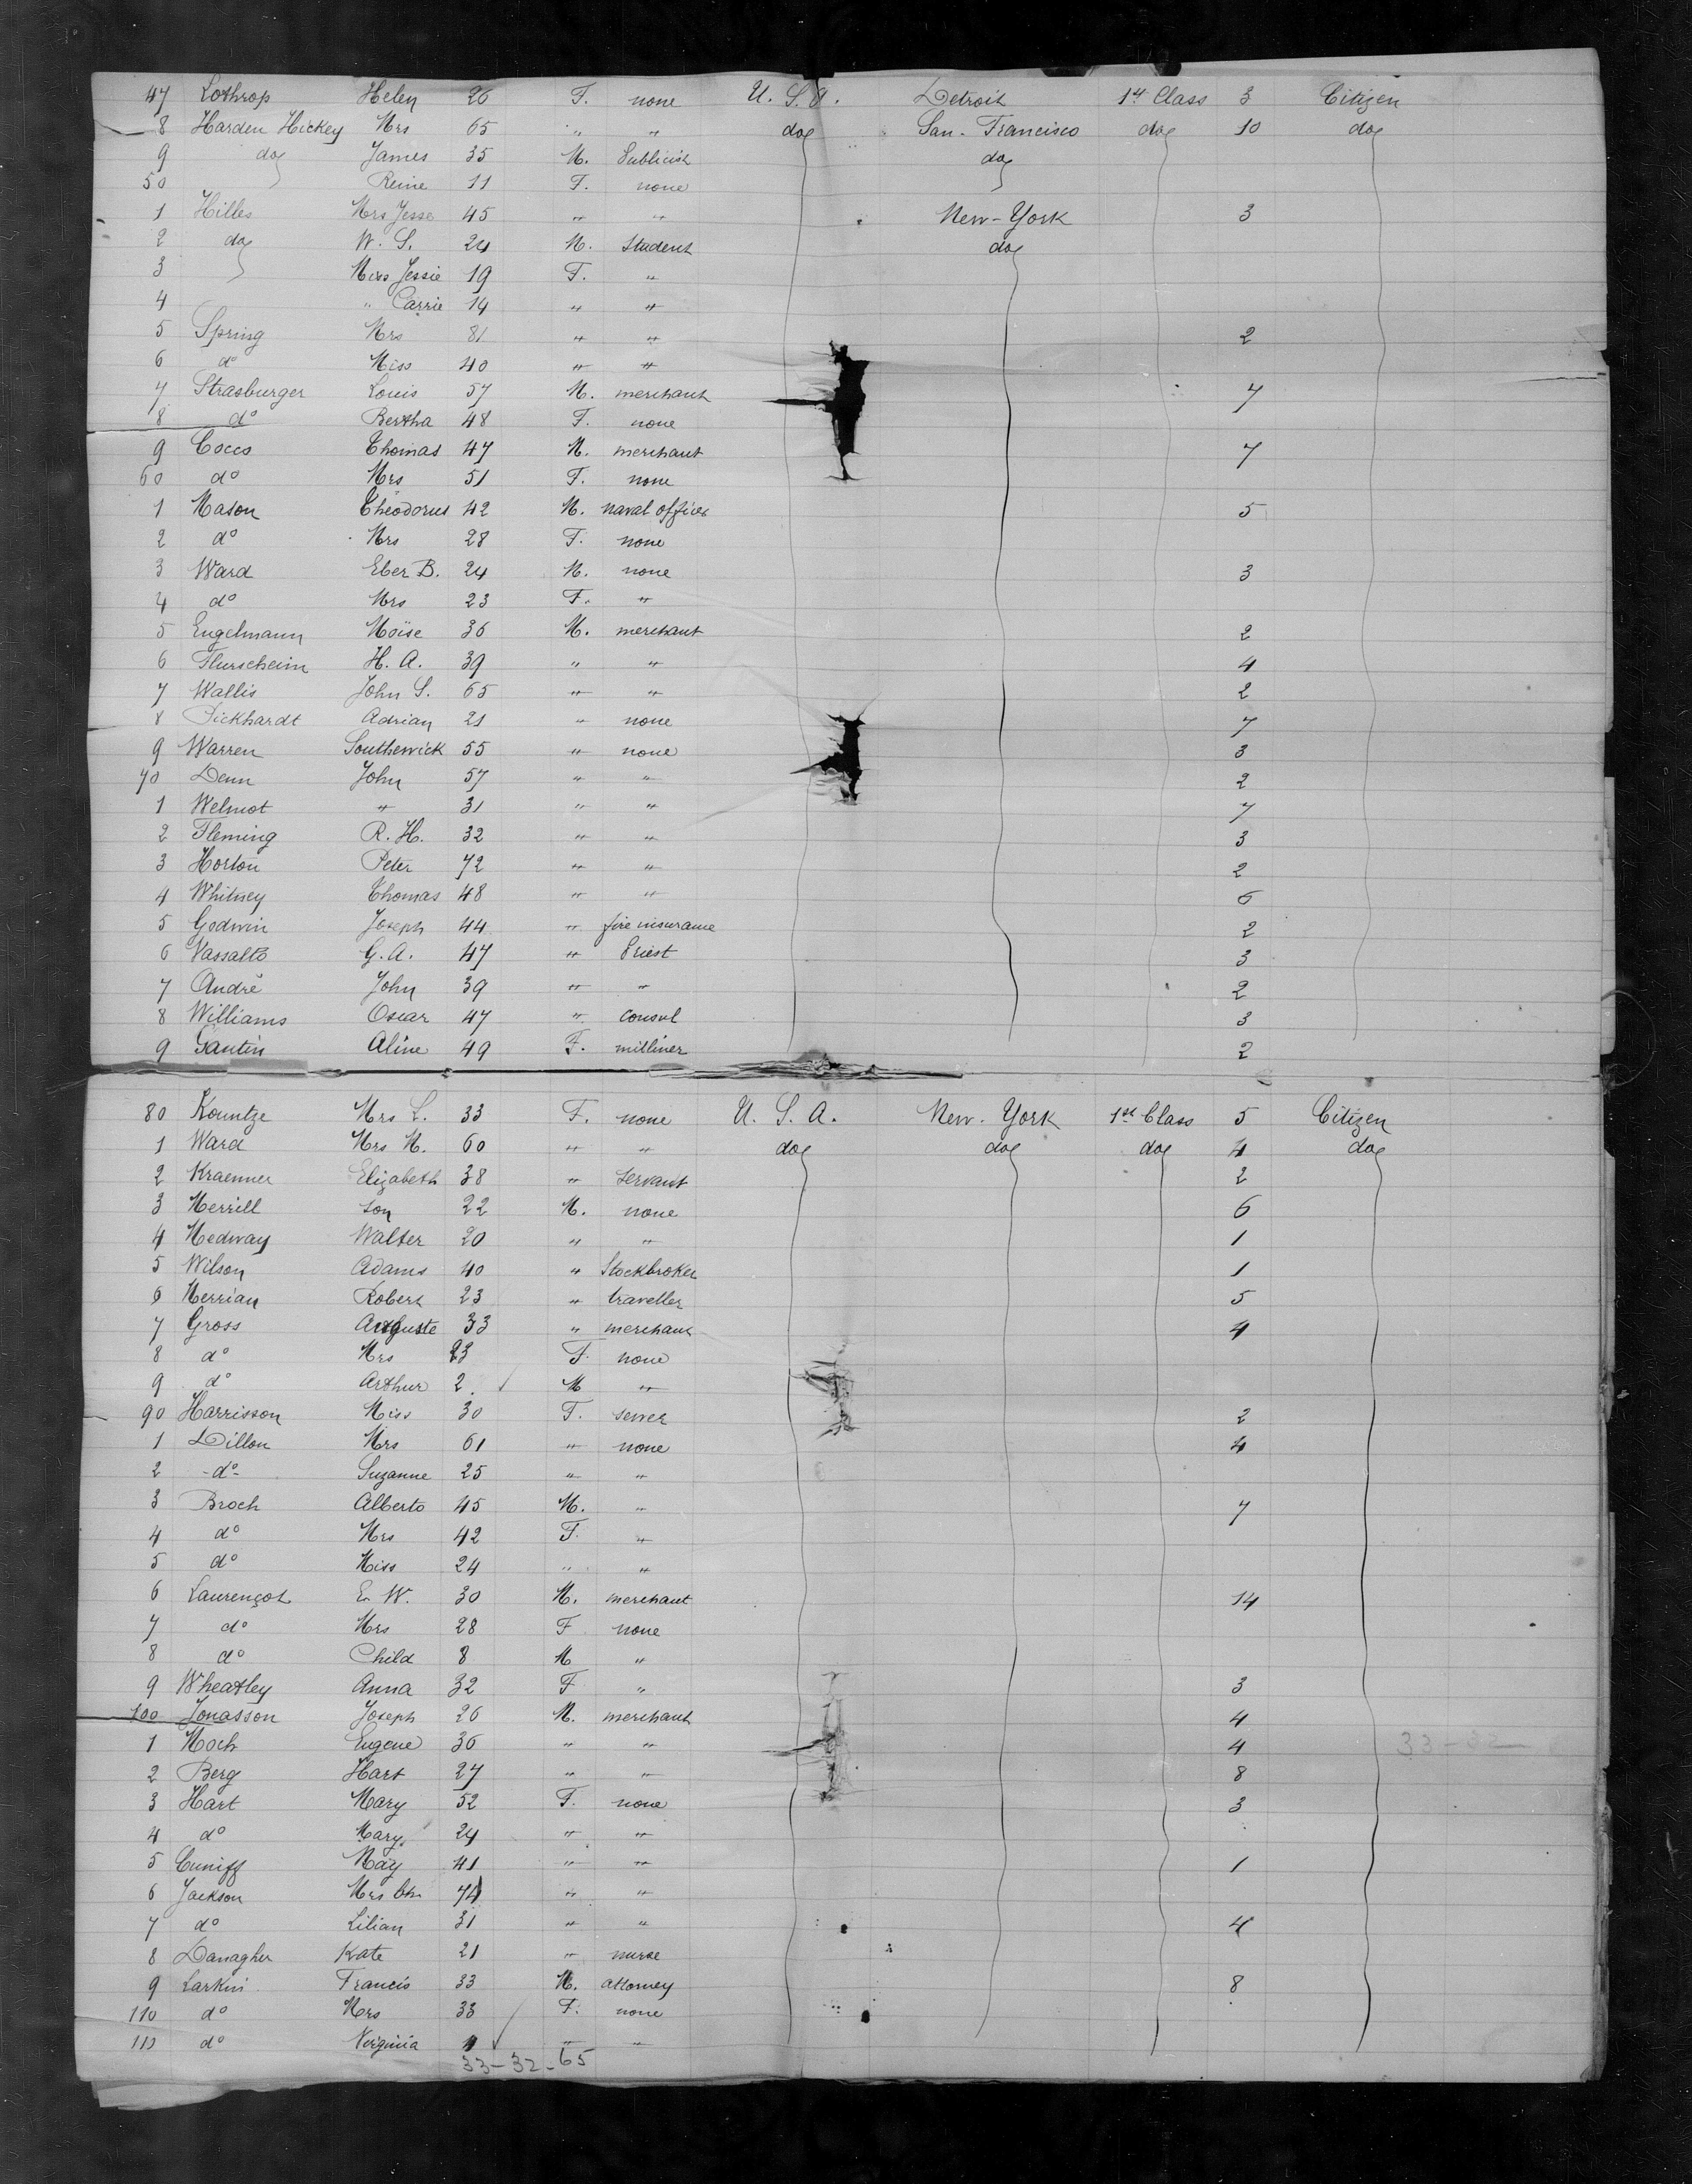 47 Lothrop Helen 26 F. none U. S. A. Detroit 1st Class 3 Citizen
8 Harden Hickey Mrs 65 " " do San-Francisco do 10 do
9 do James 35 M. Publicist do
50 Reine 11 F. none
1 Hilles Mrs Jesse 45 " " New-York 3
2 do W. S. 24 M. Student do
3 Miss Jessie 19 F. "
4 " Carrie 14 " "
5 Spring Mrs 81 " " 2
6 do Miss 40 " "
7 Strasburger Louis 57 M. merchant 7
8 do Bertha 48 F. none
9 Cocco Thomas 47 M. merchant 7
60 do Mrs 51 F. none
1 Mason Theodorus 42 M. naval officer 5
2 do Mrs 28 F. none
3 Ward Eber B. 24 M. none 3
4 do Mrs 23 F. "
5 Engelmann Moïse 36 M. merchant 2
6 Flurscheim H. A. 39 " " 4
7 Wallis John S. 65 " " 2
8 Pickhardt Adrian 21 " none 7
9 Warren Southewick 55 " none 3
70 Denn John 57 " " 2
1 Welmot " 31 " " 7
2 Fleming R. H. 32 " " 3
3 Horton Peter 72 " " 2
4 Whitney Thomas 48 " " 6
5 Godwin Joseph 44 " fire insurance 2
6 Vassalto G. A. 47 " Priest 3
7 André John 39 " " 2
8 Williams Oscar 47 " Consul 3
9 Gantin Aline 49 F. milliner 2
80 Kountze Mrs L. 33 F. none U. S. A. New-York 1st Class 5 Citizen
1 Ward Mrs M. 60 " " do do do 4 do
2 Kraenner Elizabeth 38 " Servant 2
3 Merrill Son 22 M. none 6
4 Medway Walter 20 " " 1
5 Wilson Adams 40 " Stockbroker 1
6 Merrian Robert 23 " traveller 5
7 Gross Auguste 33 " merchant 4
8 do Mrs 23 F. none
9 do Arthur 2 M "
90 Harrisson Miss 30 F. sewer 2
1 Dillon Mrs 61 " none 4
2 -do- Suzanne 25 " "
3 Broch Alberto 45 M. " 7
4 do Mrs 42 F. "
5 do Miss 24 " "
6 Laurençot E. W. 30 M. merchant 14
7 do Mrs 28 F none
8 do Child 8 M "
9 Wheatley Anna 32 F " 3
100 Jonasson Joseph 26 M. merchant 4
1 Hoch Eugene 36 " " 4 33-32
2 Berg Hart 27 " " 8
3 Hart Mary 52 F. none 3
4 do Mary 24 " "
5 Cuniff May 41 " " 1
6 Jackson Mrs Ch. 74 " "
7 do Lilian 31 " " 4
8 Danagher Kate 21 " nurse
9 Larkin Francis 33 M. attorney 8
110 do Mrs 33 F. none
111 do Virginia " "
33-32-65